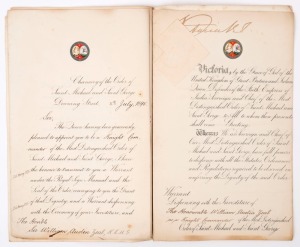 Chancery of the Order of
Saint Michael and Saint George
Downing Street July
Sir,
The Queen having been graciously
pleased to appoint you to be a Knight Com-
mander of the Most Distinguished Order of
Saint Michael and Saint George I have
the honour to transmit to you a Warrant
under the Royal Sign Manual and the
Seal of the Order conveying to you the Grant
of that Dignity and a Warrant dispensing
with the Ceremony of your Investiture and
The Honble
Sir William Zeal, K.C.M.G.
Victoria, by the Grace of God of the
United Kingdom of Great Britain and Ireland
Queen, Defender of the Faith, Empress of
India, Sovereign and Chief of the Most
Distinguished Order of Saint Michael and Saint
George To all to whom these presents
shall come Greeting
Whereas We as Sovereign and Chief of
Our Most Distinguished Order of Saint
Michael and Saint George have full power
to dispense with all the Statutes, Ordinances
and Regulations required to be observed in
conferring the Dignity of the said Order
Warrant
Dispensing with the Investiture of
The Honourable William Austin Zeal
as a Knight Commander of the Most Distinguished
Order of Saint Michael and Saint George